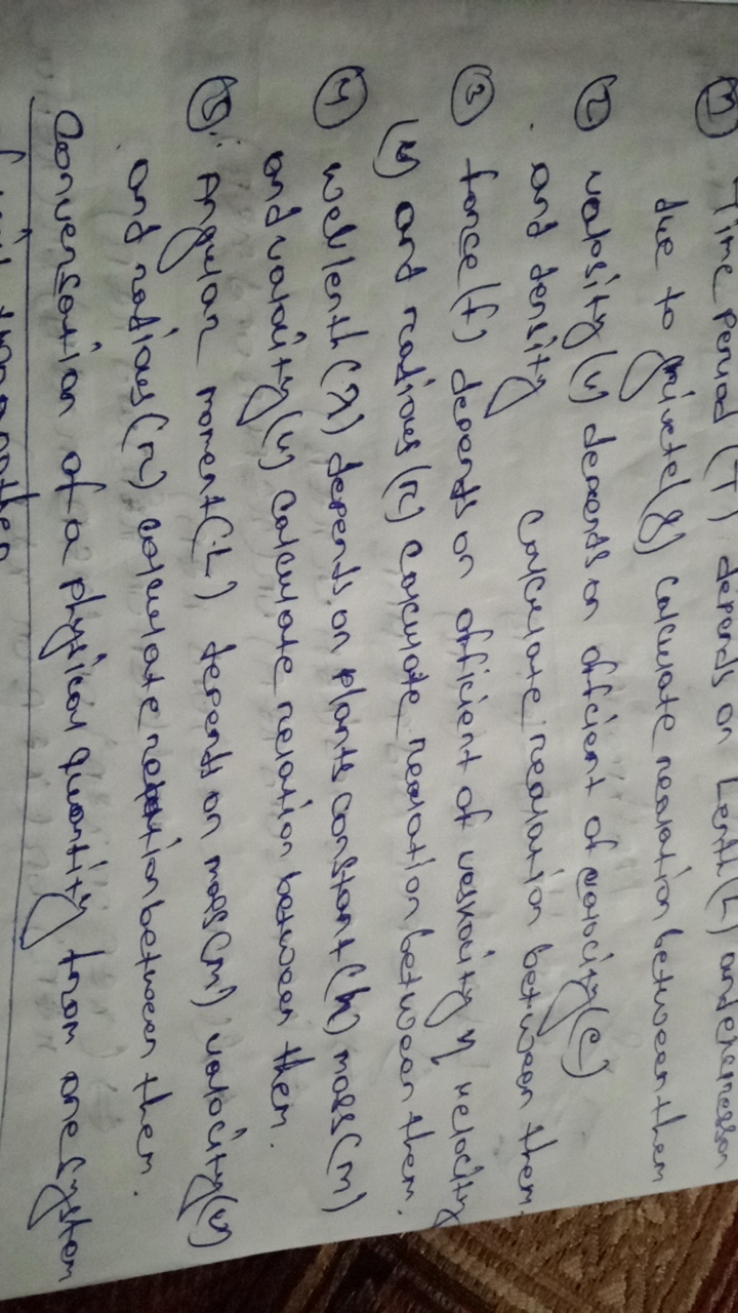 ① Time period (T) depends on Lenth (L) and
due to (g) calculate realation between them
② valosity (v) depends on officient of valocity (e)
and density calculate realation between them.
③ force (f) depends on officient of vescocity η velocity
(v) and radious (r) calculate realation between them.
④ wevlenth (λ) depends on plants constant (h) mass (m)
and valocity (v) calculate relation between them.
⑤ Angular moment (L) depends on mass (m) valocity (v)
and radious (r) calculate relation between them.
Conversation of a physical quantity from one system